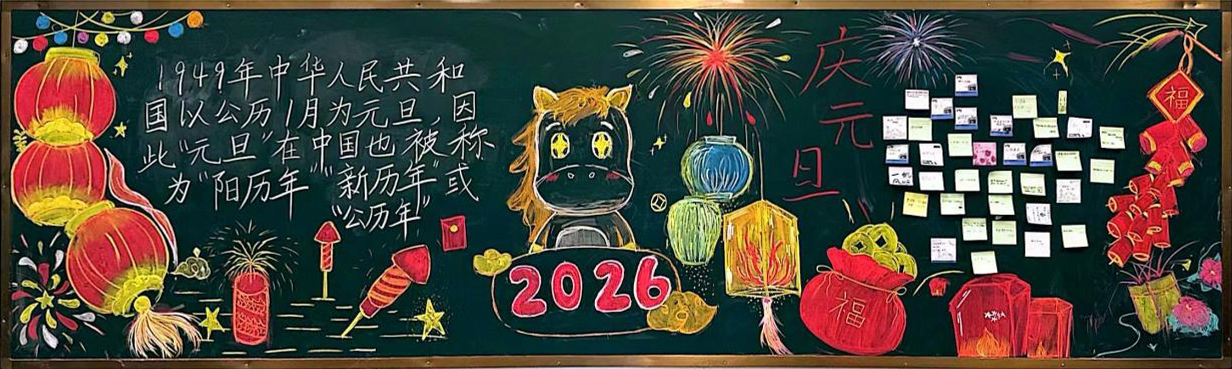 1949年中华人民共和
国以公历1月为元旦,因
此"元旦"在中国也被称
为"阳历年""新历年"或
"公历年"
2026
庆
元
旦
福
福